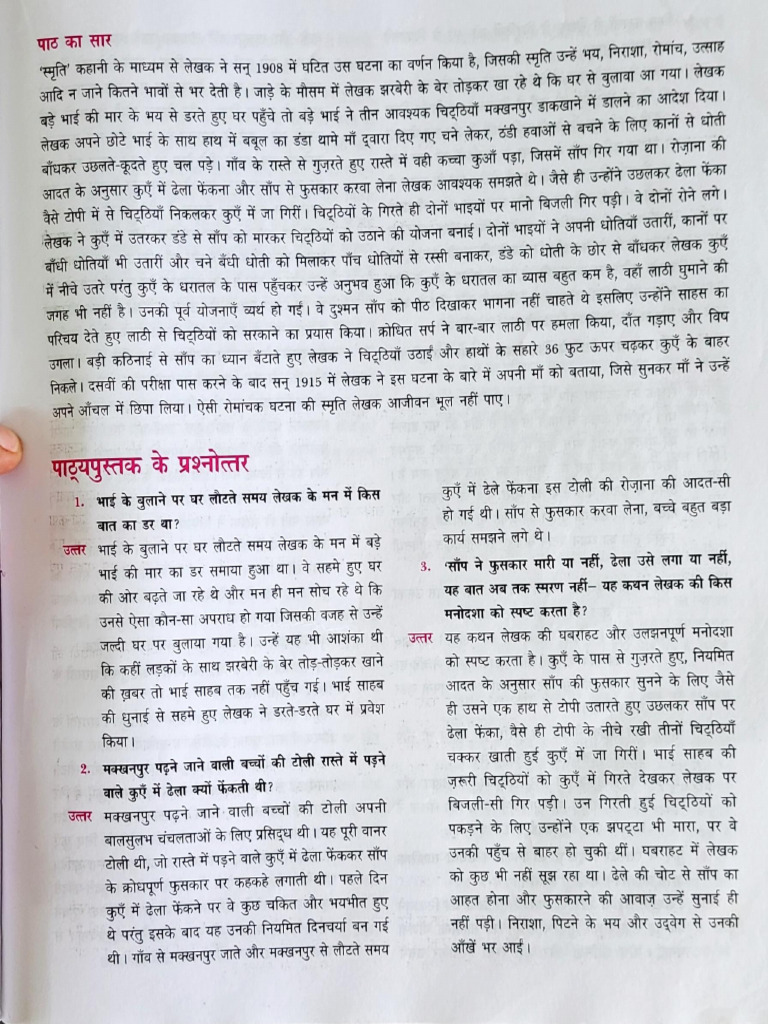 पाठ का सार
'स्मृति' कहानी के माध्यम से लेखक ने सन् 1908 में घटित उस घटना का वर्णन किया है, जिसकी स्मृति उन्हें भय, निराशा, रोमांच, उत्साह
आदि न जाने कितने भावों से भर देती है। जाड़े के मौसम में लेखक झरबेरी के बेर तोड़कर खा रहे थे कि घर से बुलावा आ गया। लेखक
बड़े भाई की मार के भय से डरते हुए घर पहुँचे तो बड़े भाई ने तीन आवश्यक चिट्ठियाँ मक्खनपुर डाकखाने में डालने का आदेश दिया।
लेखक अपने छोटे भाई के साथ हाथ में बबूल का डंडा थामे माँ द्वारा दिए गए चने लेकर, ठंडी हवाओं से बचने के लिए कानों से धोती
बाँधकर उछलते-कूदते हुए चल पड़े। गाँव के रास्ते से गुज़रते हुए रास्ते में वही कच्चा कुआँ पड़ा, जिसमें साँप गिर गया था। रोज़ाना की
आदत के अनुसार कुएँ में ढेला फेंकना और साँप से फुसकार करवा लेना लेखक आवश्यक समझते थे। जैसे ही उन्होंने उछलकर ढेला फेंका
वैसे टोपी में से चिट्ठियाँ निकलकर कुएँ में जा गिरीं। चिट्ठियों के गिरते ही दोनों भाइयों पर मानो बिजली गिर पड़ी। वे दोनों रोने लगे।
लेखक ने कुएँ में उतरकर डंडे से साँप को मारकर चिट्ठियों को उठाने की योजना बनाई। दोनों भाइयों ने अपनी धोतियाँ उतारीं, कानों पर
बाँधी धोतियाँ भी उतारीं और चने बँधी धोती को मिलाकर पाँच धोतियों से रस्सी बनाकर, डंडे को धोती के छोर से बाँधकर लेखक कुएँ
में नीचे उतरे परंतु कुएँ के धरातल के पास पहुँचकर उन्हें अनुभव हुआ कि कुएँ के धरातल का व्यास बहुत कम है, वहाँ लाठी घुमाने की
जगह भी नहीं है। उनकी पूर्व योजनाएँ व्यर्थ हो गईं। वे दुश्मन साँप को पीठ दिखाकर भागना नहीं चाहते थे इसलिए उन्होंने साहस का
परिचय देते हुए लाठी से चिट्ठियों को सरकाने का प्रयास किया। क्रोधित सर्प ने बार-बार लाठी पर हमला किया, दाँत गड़ाए और विष
उगला। बड़ी कठिनाई से साँप का ध्यान बँटाते हुए लेखक ने चिट्ठियाँ उठाईं और हाथों के सहारे 36 फुट ऊपर चढ़कर कुएँ के बाहर
निकले। दसवीं की परीक्षा पास करने के बाद सन् 1915 में लेखक ने इस घटना के बारे में अपनी माँ को बताया, जिसे सुनकर माँ ने उन्हें
अपने आँचल में छिपा लिया। ऐसी रोमांचक घटना की स्मृति लेखक आजीवन भूल नहीं पाए।
पाठ्यपुस्तक के प्रश्नोत्तर
1. भाई के बुलाने पर घर लौटते समय लेखक के मन में किस
बात का डर था?
उत्तर भाई के बुलाने पर घर लौटते समय लेखक के मन में बड़े
भाई की मार का डर समाया हुआ था। वे सहमे हुए घर
की ओर बढ़ते जा रहे थे और मन ही मन सोच रहे थे कि
उनसे ऐसा कौन-सा अपराध हो गया जिसकी वजह से उन्हें
जल्दी घर पर बुलाया गया है। उन्हें यह भी आशंका थी
कि कहीं लड़कों के साथ झरबेरी के बेर तोड़-तोड़कर खाने
की ख़बर तो भाई साहब तक नहीं पहुँच गई। भाई साहब
की धुनाई से सहमे हुए लेखक ने डरते-डरते घर में प्रवेश
किया।
2. मक्खनपुर पढ़ने जाने वाली बच्चों की टोली रास्ते में पड़ने
वाले कुएँ में ढेला क्यों फेंकती थी?
उत्तर मक्खनपुर पढ़ने जाने वाली बच्चों की टोली अपनी
बालसुलभ चंचलताओं के लिए प्रसिद्ध थी। यह पूरी वानर
टोली थी, जो रास्ते में पड़ने वाले कुएँ में ढेला फेंककर साँप
के क्रोधपूर्ण फुसकार पर कहकहे लगाती थी। पहले दिन
कुएँ में ढेला फेंकने पर वे कुछ चकित और भयभीत हुए
थे परंतु इसके बाद यह उनकी नियमित दिनचर्या बन गई
थी। गाँव से मक्खनपुर जाते और मक्खनपुर से लौटते समय
कुएँ में ढेले फेंकना इस टोली की रोज़ाना की आदत-सी
हो गई थी। साँप से फुसकार करवा लेना, बच्चे बहुत बड़ा
कार्य समझने लगे थे।
3. 'साँप ने फुसकार मारी या नहीं, ढेला उसे लगा या नहीं,
यह बात अब तक स्मरण नहीं– यह कथन लेखक की किस
मनोदशा को स्पष्ट करता है?
उत्तर यह कथन लेखक की घबराहट और उलझनपूर्ण मनोदशा
को स्पष्ट करता है। कुएँ के पास से गुज़रते हुए, नियमित
आदत के अनुसार साँप की फुसकार सुनने के लिए जैसे
ही उसने एक हाथ से टोपी उतारते हुए उछलकर साँप पर
ढेला फेंका, वैसे ही टोपी के नीचे रखी तीनों चिट्ठियाँ
चक्कर खाती हुई कुएँ में जा गिरीं। भाई साहब की
ज़रूरी चिट्ठियों को कुएँ में गिरते देखकर लेखक पर
बिजली-सी गिर पड़ी। उन गिरती हुई चिट्ठियों को
पकड़ने के लिए उन्होंने एक झपट्टा भी मारा, पर वे
उनकी पहुँच से बाहर हो चुकी थीं। घबराहट में लेखक
को कुछ भी नहीं सूझ रहा था। ढेले की चोट से साँप का
आहत होना और फुसकारने की आवाज़ उन्हें सुनाई ही
नहीं पड़ी। निराशा, पिटने के भय और उद्वेग से उनकी
आँखें भर आईं।